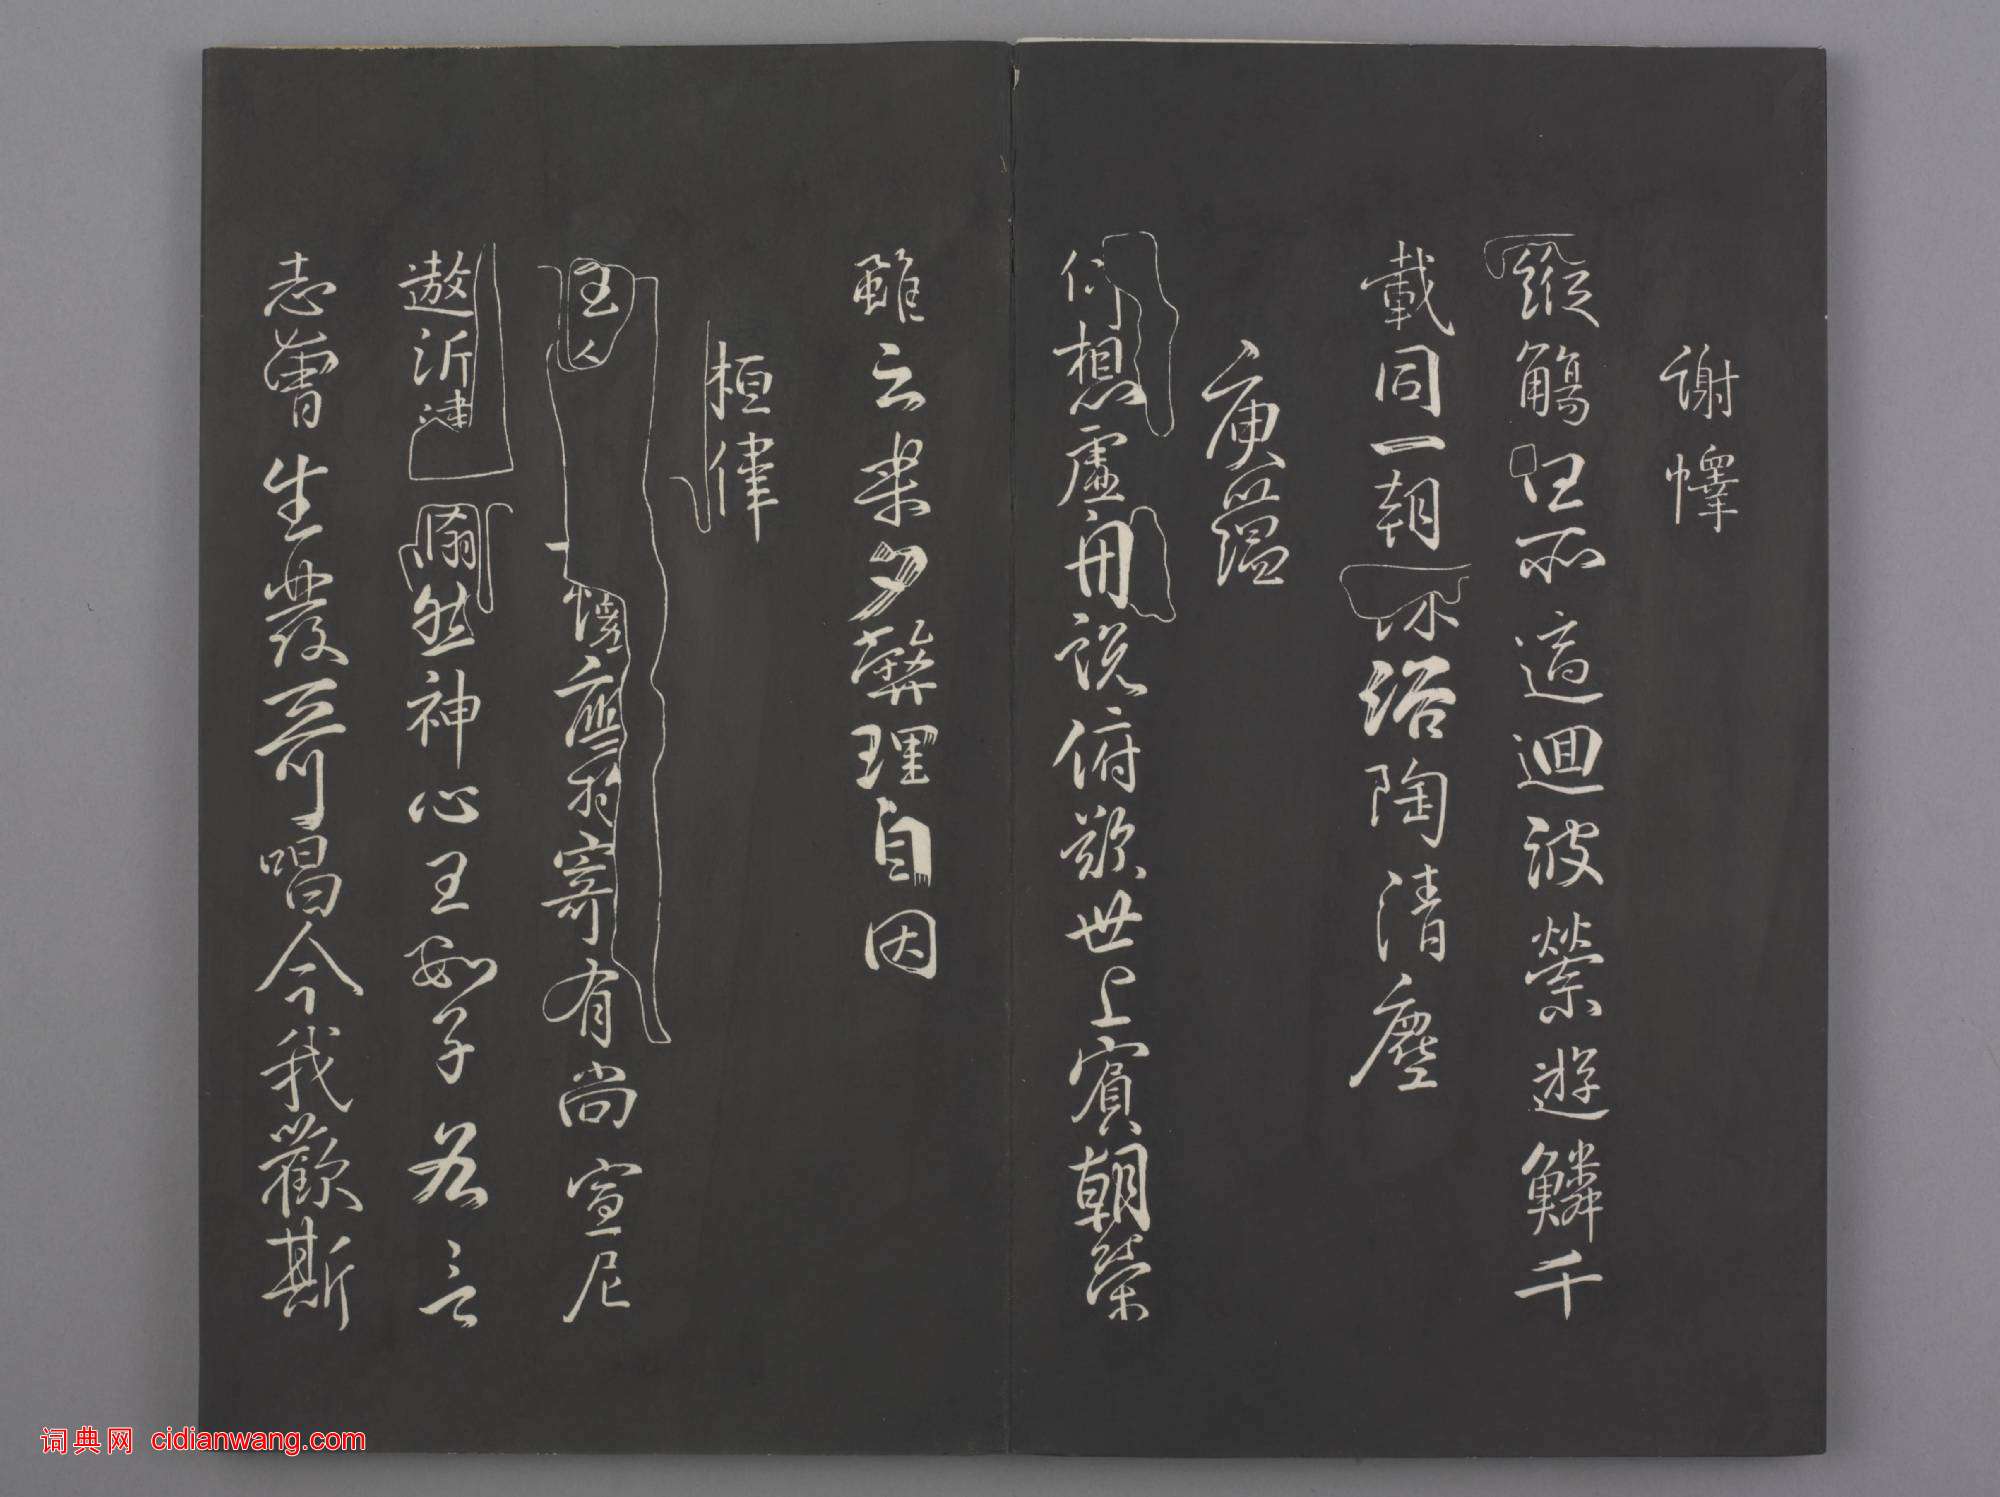 謝繹
縱觴任所適迴波縈遊鱗千
載同一朝沐浴陶清塵
庾蘊
仰想虛舟說俯歎世上賓朝榮
雖云樂夕斃理自因
桓偉
主人懷應物寄有尚宣尼
遨沂津翛然神心王數子各言
志曾生發奇唱今我歡斯
词典网 cidianwang.com